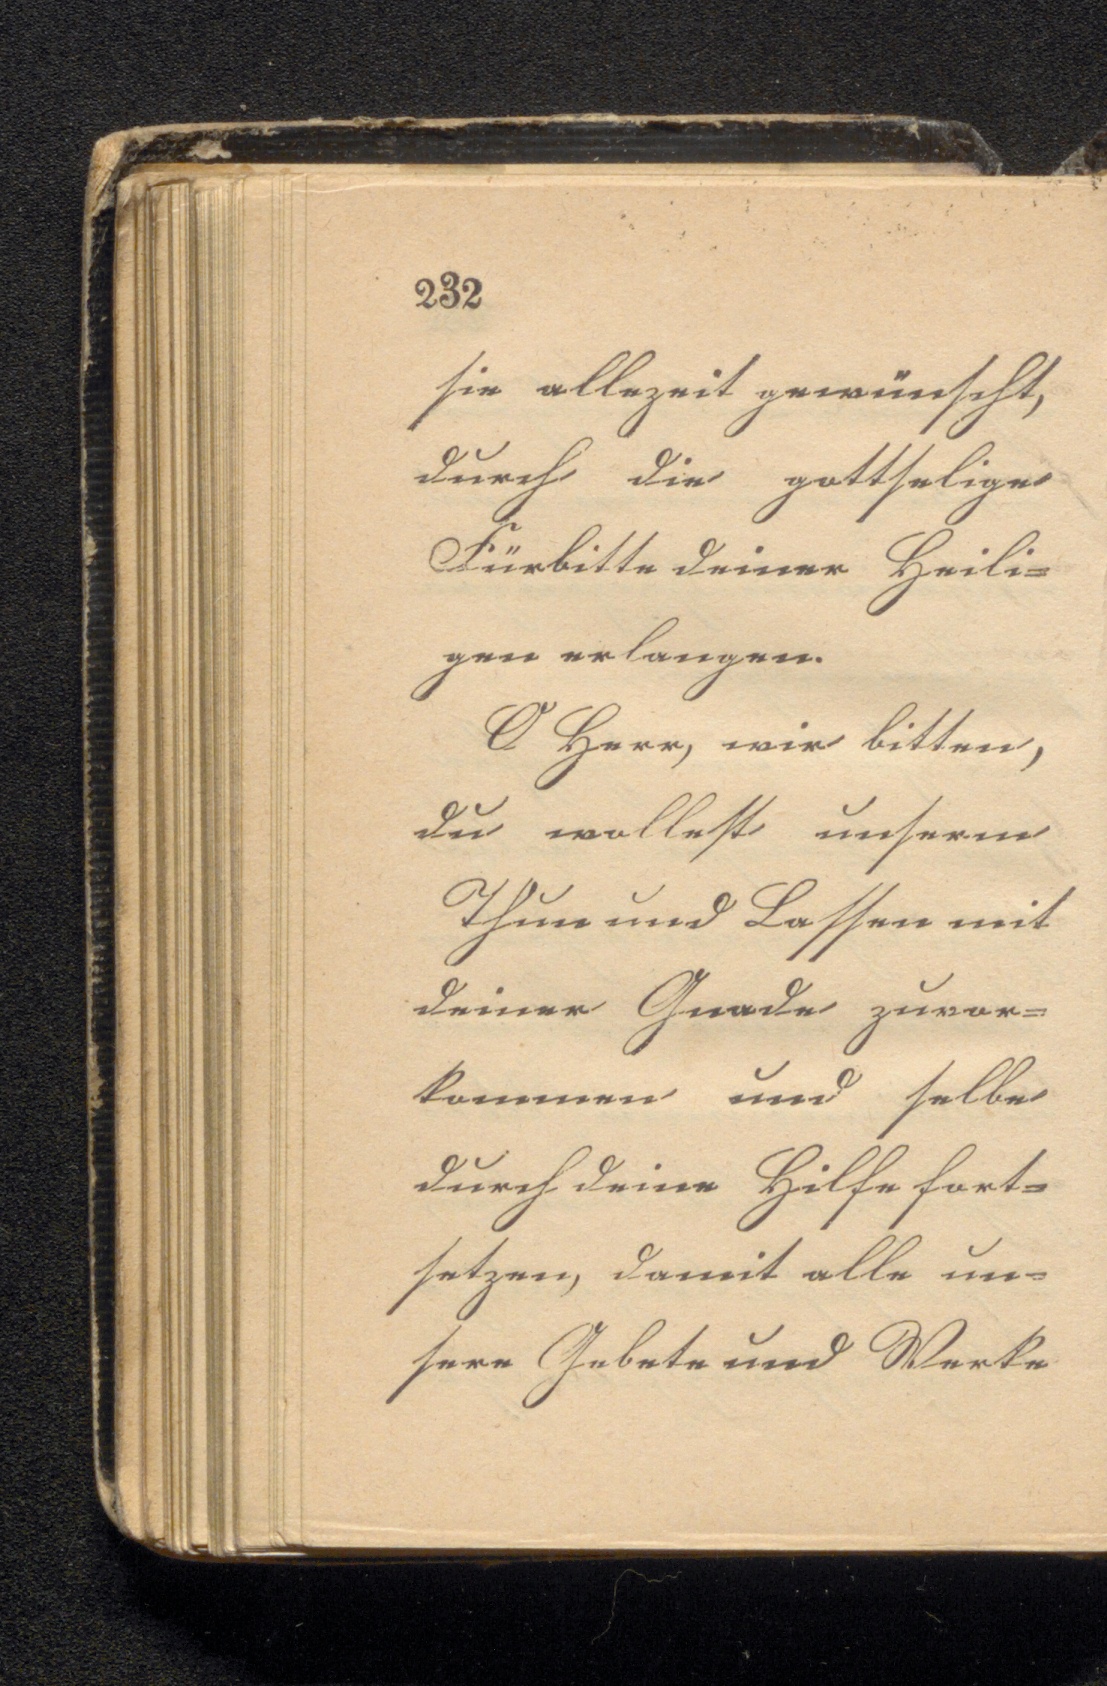 232
sie allezeit gewünscht,
durch die gottselige
Fürbitte deiner Heili=
gen erlangen.
O Herr, wir bitten,
du wollest unserm
Thun und Lassen mit
deiner Gnade zuvor=
kommen und selbe
durch deine Hilfe fort=
setzen, damit alle un=
sere Gebete und Werke